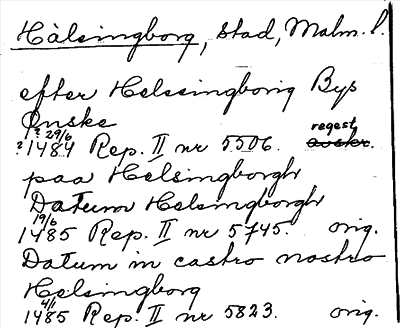 Hälsingborg, stad, Malm. l.
efter Helsingborig Bys
Ønske
? 29/6
?1484 Rep. II nr 5506. regest
paa Helsingborgh
Datum Helsingborgh
19/6
1485 Rep. II nr 5745. orig.
Datum in castro nostro
Helsingborg
4/1
1485 Rep. II nr 5823. orig.